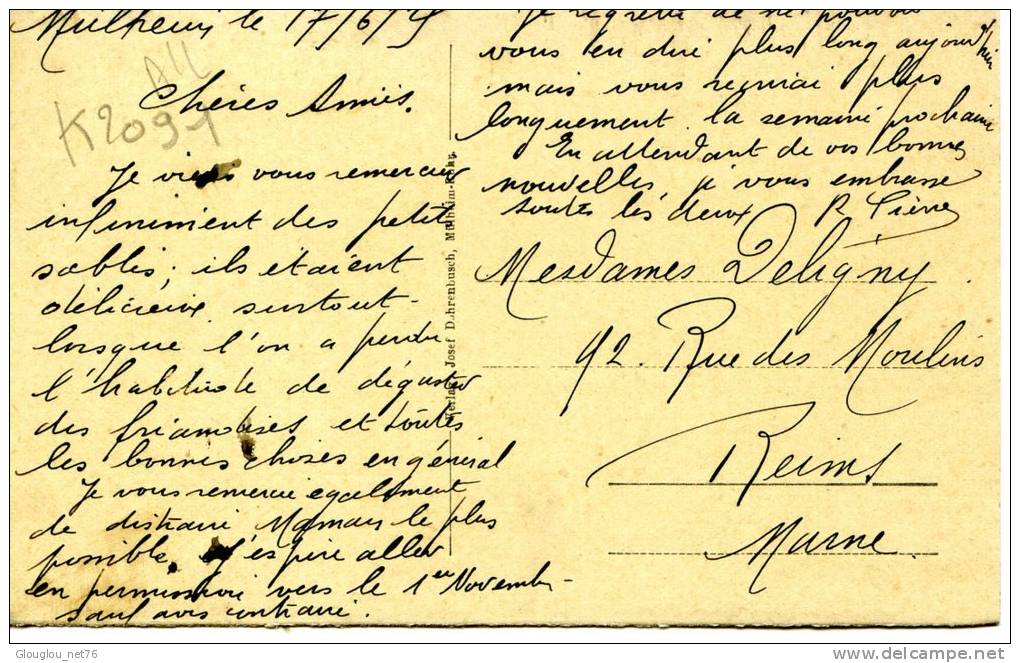 Mülheim le 17/6/25
All
K2091
Chères Amies.
Je viens vous remercier
infiniment des petits
sablés; ils étaient
délicieux surtout
lorsque l'on a perdu
l'habitude de déguster
des friandises et toutes
les bonnes choses en général
Je vous remercie également
de distraire Maman le plus
possible. J'espère aller
en permission vers le 1er Novembre
sauf avis contraire.
Je regrette de ne pouvoir
vous en dire plus long aujourd'hui
mais vous écrirai plus
longuement la semaine prochaine
En attendant de vos bonnes
nouvelles, je vous embrasse
toutes les deux R Pierre
Mesdames Deligny
42. Rue des Moulins
Reims
Marne.
Verlag Josef Dohrenbusch, Mülheim-Ruhr.
Glouglou_net76
delcampe.net